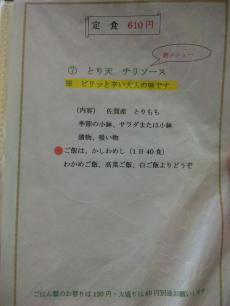 定食 610円
新メニュー
⑦ とり天 チリソース
ピリッと辛い大人の味です
(内容) 佐賀産 とりもも
季節の小鉢、サラダまたは小鉢
漬物、吸い物
ご飯は、かしわめし(1日40食)
わかめご飯、高菜ご飯、白ご飯よりどうぞ
ごはん類のお替りは120円・大盛りは60円別途お願いします